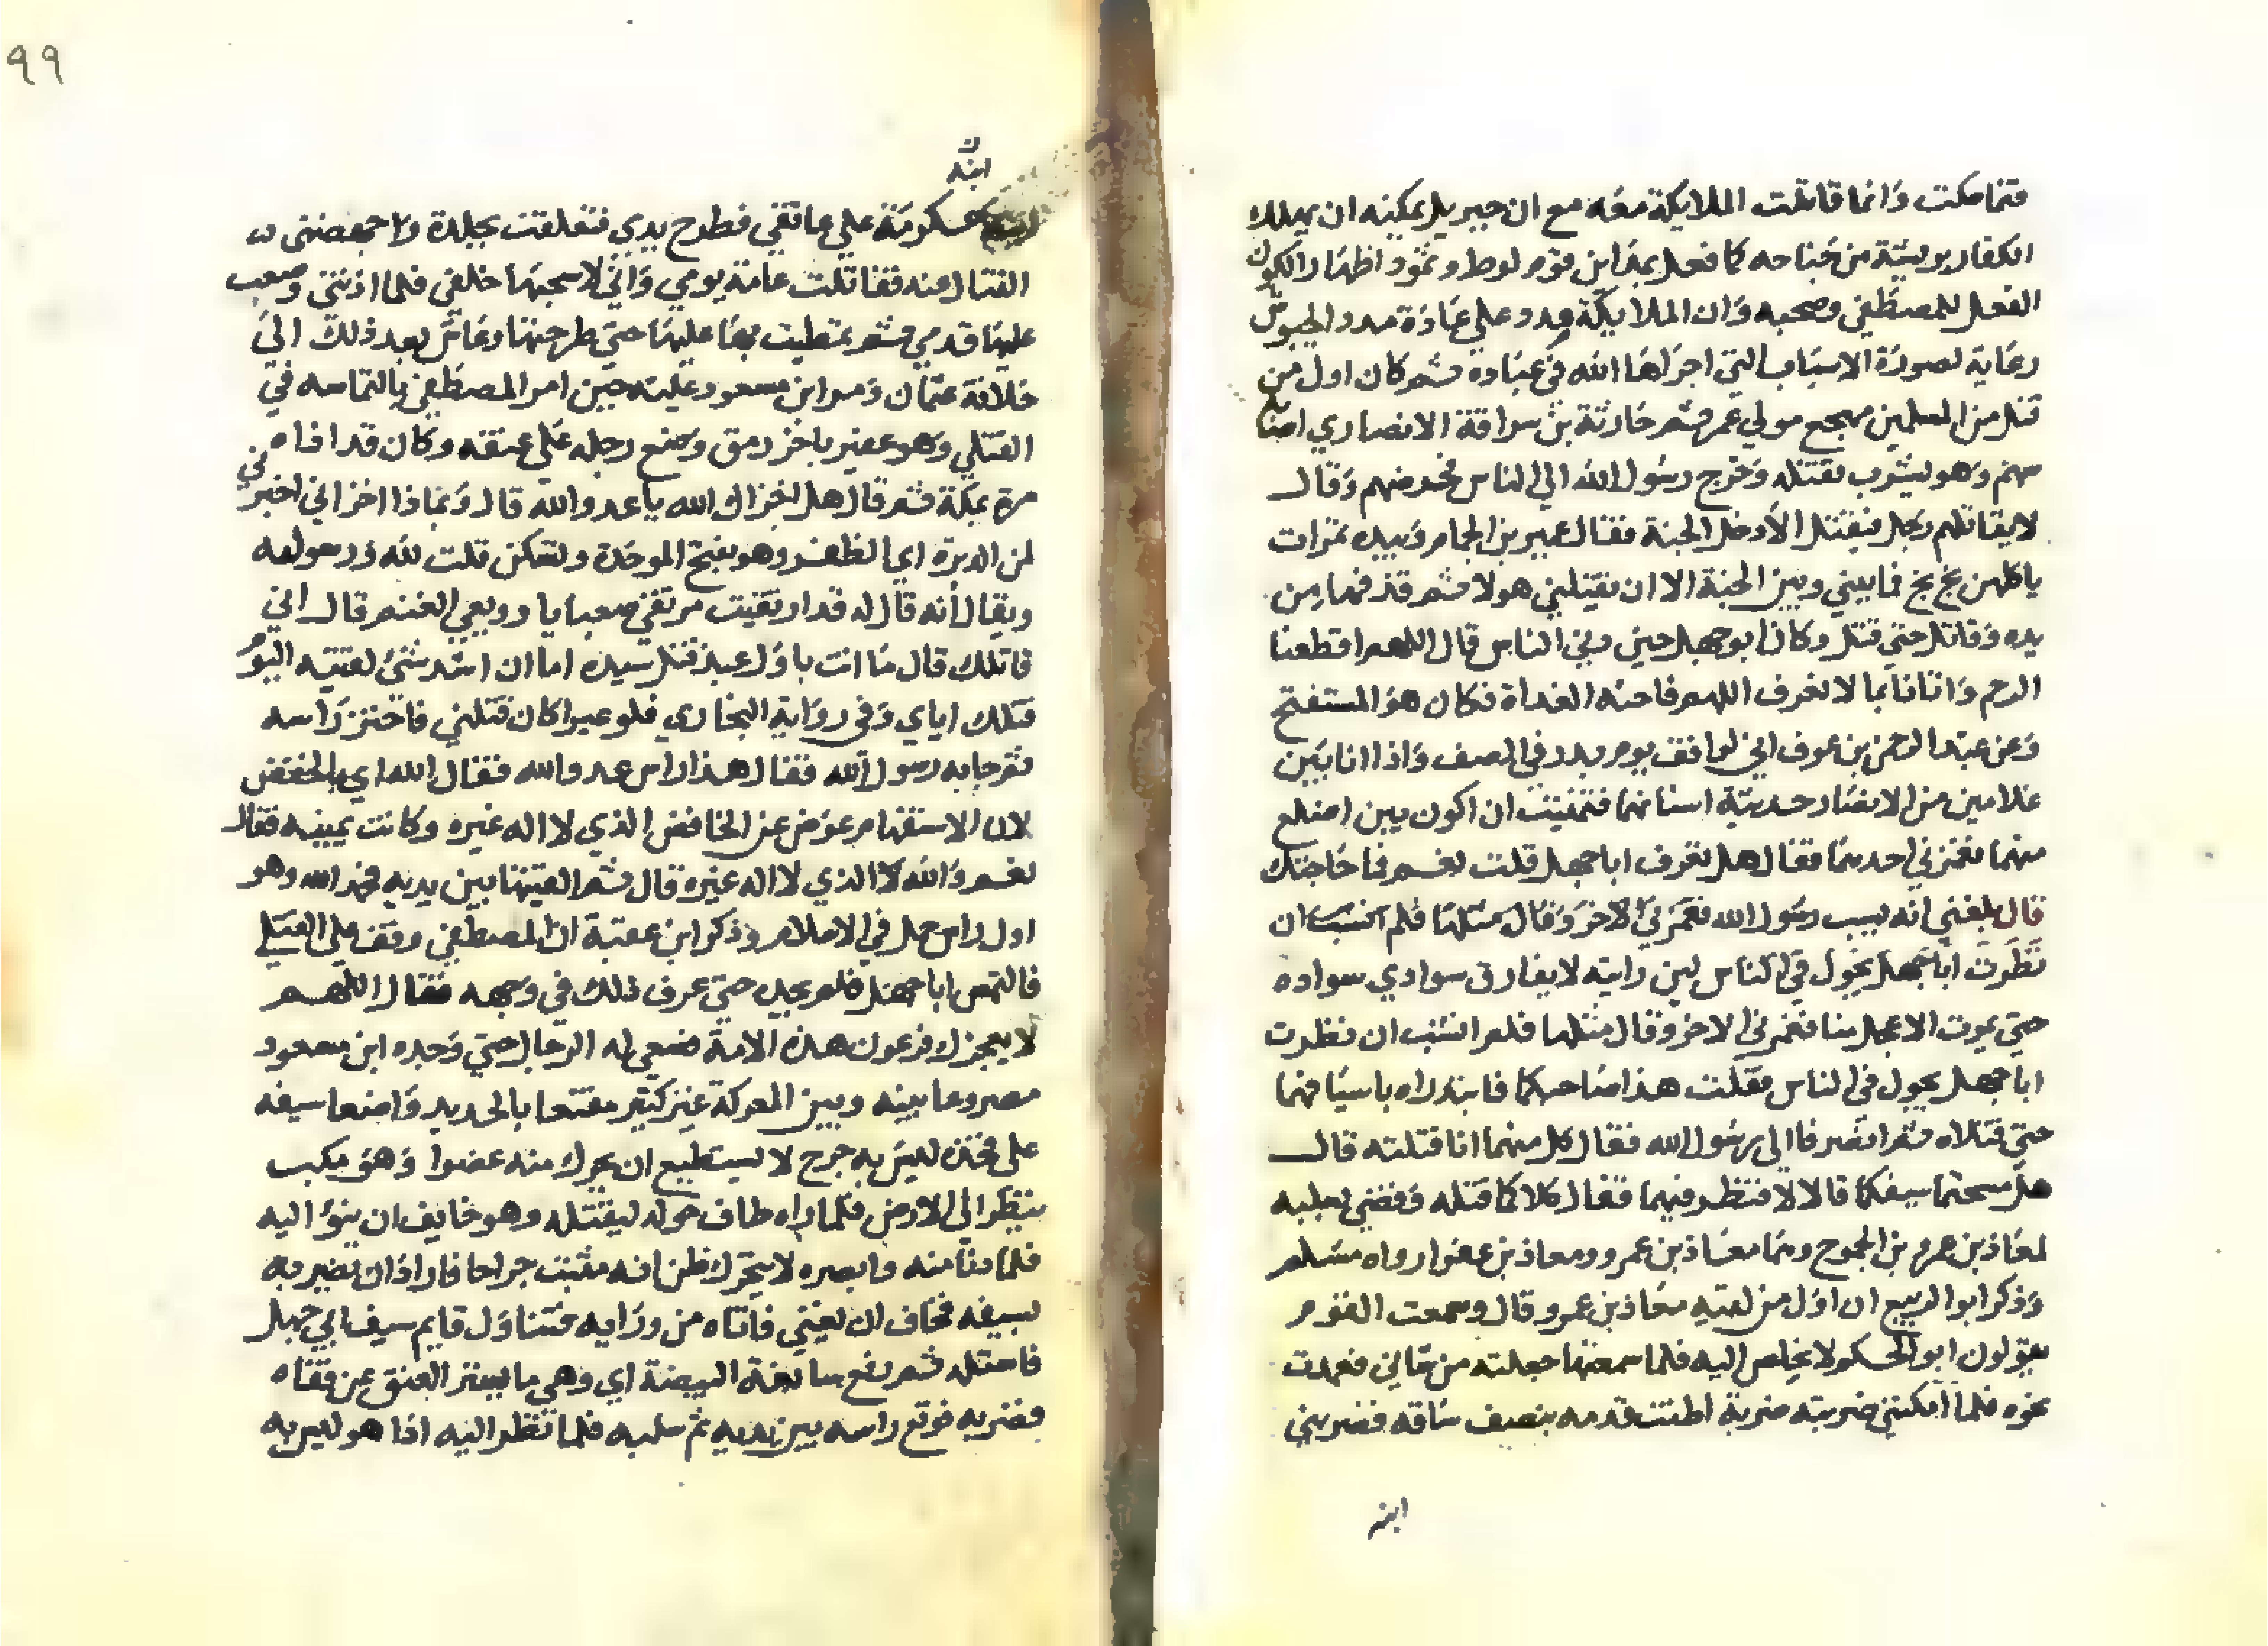 فتماسكت وانما قاتلت الملايكة معه مع ان جبريل يمكنه ان يهلك
الكفار بريشة من جناحه كما فعل بمداين قوم لوط وثمود اظهارا لكون
الفعل للمصطفى وصحبه وان الملايكة مدد على عادة مدد الجيوش
رعاية لصورة الاسباب التي اجراها الله في عباده ثم كان اول من
قتل من المسلمين مهجع مولى عمر ثم حارثة بن سراقة الانصاري اصابه
سهم وهو يشرب فقتله وخرج رسول الله الى الناس فحرضهم وقال
لا يقاتلهم رجل فيقتل الا دخل الجنة فقال عمير بن الحمام وبيده تمرات
ياكلهن بخ بخ فما بيني وبين الجنة الا ان يقتلني هولا ثم قذفها من
يده وقاتل حتى قتل وكان ابو جهل حين دنى الناس قال اللهم اقطعنا
الرحم واتانا بما لا نعرف اللهم فاحنه الغداة فكان هو المستفتح
وعن عبد الرحمن بن عوف اني لواقف يوم بدر في الصف واذا انا بين
غلامين من الانصار حديثة اسنانهما فتمنيت ان اكون بين اضلع
منهما فغمزني احدهما فقال هل تعرف ابا جهل قلت نعم فما حاجتك
قال بلغني انه يسب رسول الله فغمزني الاخر وقال مثلها فلم انشب ان
نظرت ابا جهل يجول في الناس لين رايته لا يفارق سوادي سواده
حتى يموت الاعجل منا فغمزني الاخر وقال مثلها فلم انشب ان نظرت
ابا جهل يجول في الناس فقلت هذا صاحبكما فابتدراه باسيافهما
حتى قتلاه ثم انصرفا الى رسول الله فقال كل منهما انا قتلته قال
هل مسحتما سيفكما قالا لا فنظر فيهما فقال كلاكما قتله وقضى بسلبه
لمعاذ بن عمرو بن الجموح وهما معاذ بن عمرو ومعاذ بن عفرا رواه مسلم
وذكر ابو الربيع ان اول من لقيه معاذ بن عمرو قال وسمعت القوم
يقولون ابو الحكم لا يخلص اليه فلما سمعتها جعلته من شاني فعمدت
نحوه فلما امكنني ضربته ضربة اطنت قدمه بنصف ساقه فضربني
ابنه
٩٩
ابنه
عكرمة على عاتقي فطرح يدي فتعلقت بجلدة واجهضني
القتال عنه فقاتلت عامة يومي واني لاسحبها خلفي فلما اذتني وضعت
عليها قدمي ثم تمطيت بها عليها حتى طرحتها وعاش بعد ذلك الى
خلافة عثمان ومر ابن مسعود عليه حين امر المصطفى بالتماسه في
القتلى وهو عفير باخر رمق وضع رجله على عنقه وكان قد اذاه
مرة بمكة ثم قال هل اخزاك الله يا عدو الله قال وبماذا اخزاني اخبرني
لمن الدبرة اي الظفر وهو بفتح الموحدة وتسكن قلت لله ورسوله
ويقال انه قال له قد ارتقيت مرتقى صعبا يا رويعي الغنم قال اني
قاتلك قال ما انت باول عبد قتل سيده اما ان اشد شيء لقيته اليوم
قتلك اياي وفي رواية البخاري فلو غير اكار قتلني فاحتز راسه
ثم جا به رسول الله فقال هذا راس عدو الله فقال الله اي بالخفض
لان الاستفهام عوض عن الخافض الذي لا اله غيره وكانت يمينه فقال
نعم والله الذي لا اله غيره قال ثم القيتها بين يديه فحمد الله وهو
اول راس حمل في الاسلام وذكر ابن عقبة ان المصطفى وقف على القتلى
فالتمس ابا جهل فلم يجده حتى عرف ذلك في وجهه فقال اللهم
لا يعجزك فرعون هذه الامة فسعى له الرجال حتى وجده ابن مسعود
مصروعا بينه وبين المعركة غير كثير مقنعا بالحديد واضعا سيفه
على فخذه ليس به جرح لا يستطيع ان يحرك منه عضوا وهو مكب
ينظر الى الارض فلما راه طاف حوله ليقتله وهو خايف ان ينوء اليه
فلما دنا منه وابصره لا يتحرك ظن انه مثبت جراحا فاراد ان يضربه
بسيفه فخاف ان يغني فاتاه من ورايه فتناول قايم سيف ابي جهل
فاستله ثم رفع سابغة البيضة اي وهي ما يستر العنق عن قفاه
فضربه فوقع راسه بين يديه ثم سلبه فلما نظر اليه اذا هو ليس به